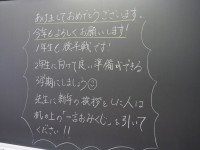 あけましておめでとうございます。
今年もよろしくお願いします!
1年生も後半戦です!
2年生に向けて良い準備ができる
3学期にしましょう☺
先生に新年の挨拶をした人は
机の上の"一言おみくじ"を引いて
ください!!